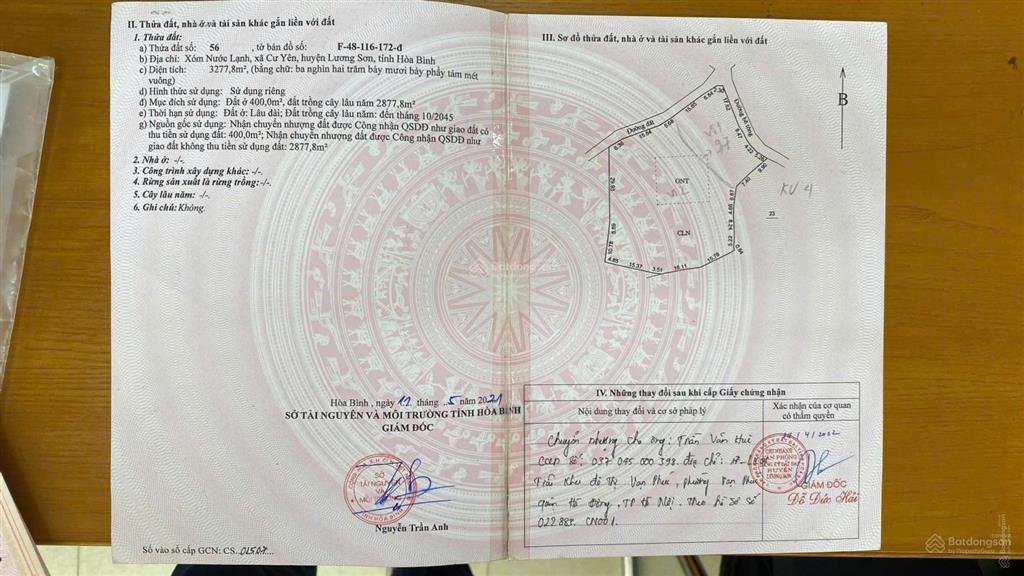 II. Thửa đất, nhà ở và tài sản khác gắn liền với đất
1. Thửa đất:
a) Thửa đất số: 56 , tờ bản đồ số: F-48-116-172-đ
b) Địa chỉ: Xóm Nước Lạnh, xã Cư Yên, huyện Lương Sơn, tỉnh Hòa Bình
c) Diện tích: 3277,8m², (bằng chữ: ba nghìn hai trăm bảy mươi bảy phẩy tám mét
vuông)
d) Hình thức sử dụng: Sử dụng riêng
đ) Mục đích sử dụng: Đất ở 400,0m², đất trồng cây lâu năm 2877,8m²
e) Thời hạn sử dụng: Đất ở: Lâu dài; Đất trồng cây lâu năm: đến tháng 10/2045
g) Nguồn gốc sử dụng: Nhận chuyển nhượng đất được Công nhận QSDĐ như giao đất có
thu tiền sử dụng đất: 400,0m²; Nhận chuyển nhượng đất được Công nhận QSDĐ như
giao đất không thu tiền sử dụng đất: 2877,8m²
2. Nhà ở: -/-.
3. Công trình xây dựng khác: -/-.
4. Rừng sản xuất là rừng trồng: -/-.
5. Cây lâu năm: -/-.
6. Ghi chú: Không.
Hòa Bình, ngày 11 tháng 5 năm 2021
SỞ TÀI NGUYÊN VÀ MÔI TRƯỜNG TỈNH HÒA BÌNH
GIÁM ĐỐC
SỞ
TÀI NGUYÊN
VÀ
MÔI TRƯỜNG
Nguyễn Trần Anh
Số vào sổ cấp GCN: CS
III. Sơ đồ thửa đất, nhà ở và tài sản khác gắn liền với đất
B
Đường đất
Đường bê tông
6.36
11.64
5.08
15.65
6.84
2.20
17.62
6.41
4.22
5.20
9.50
7.40
ONT
KV 4
CLN
23
59.82
5.69
10.78
4.85
15.37
3.51
16.11
15.78
0.94
5.22
9.34
4.66
6.67
IV. Những thay đổi sau khi cấp Giấy chứng nhận
Nội dung thay đổi và cơ sở pháp lý
Xác nhận của cơ quan
có thẩm quyền
Chuyển nhượng cho ông: Trần Văn Huê
CCCD số: 037 095 000 398. địa chỉ:
Trần Khu đô thị Vạn Phúc, phường Vạn Phúc
quận Hà Đông, TP Hà Nội. Theo hồ sơ số
022887. CN001.
14/4/2022
CHI NHÁNH
VĂN PHÒNG
ĐĂNG KÝ ĐẤT ĐAI
HUYỆN
LƯƠNG SƠN
GIÁM ĐỐC
Đỗ Đức Hải
Batdongsan
by PropertyGuru